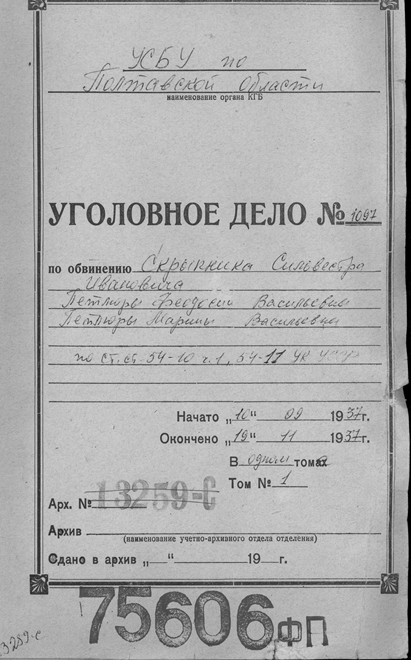 УСБУ по
Полтавской области
наименование органа КГБ
УГОЛОВНОЕ ДЕЛО № 1097
по обвинению Скрыпника Сильвестра
Ивановича
Петлюры Феодосии Васильевны
Петлюры Марины Васильевны
по ст.ст. 54-10 ч.1, 54-11 УК УССР
Начато „10" 09 1937г.
Окончено „19" 11 1937г.
В одном томах
Том № 1
Арх. № 13259-С
Архив
(наименование учетно-архивного отдела отделения)
Сдано в архив „ " 19 г.
75606 ФП